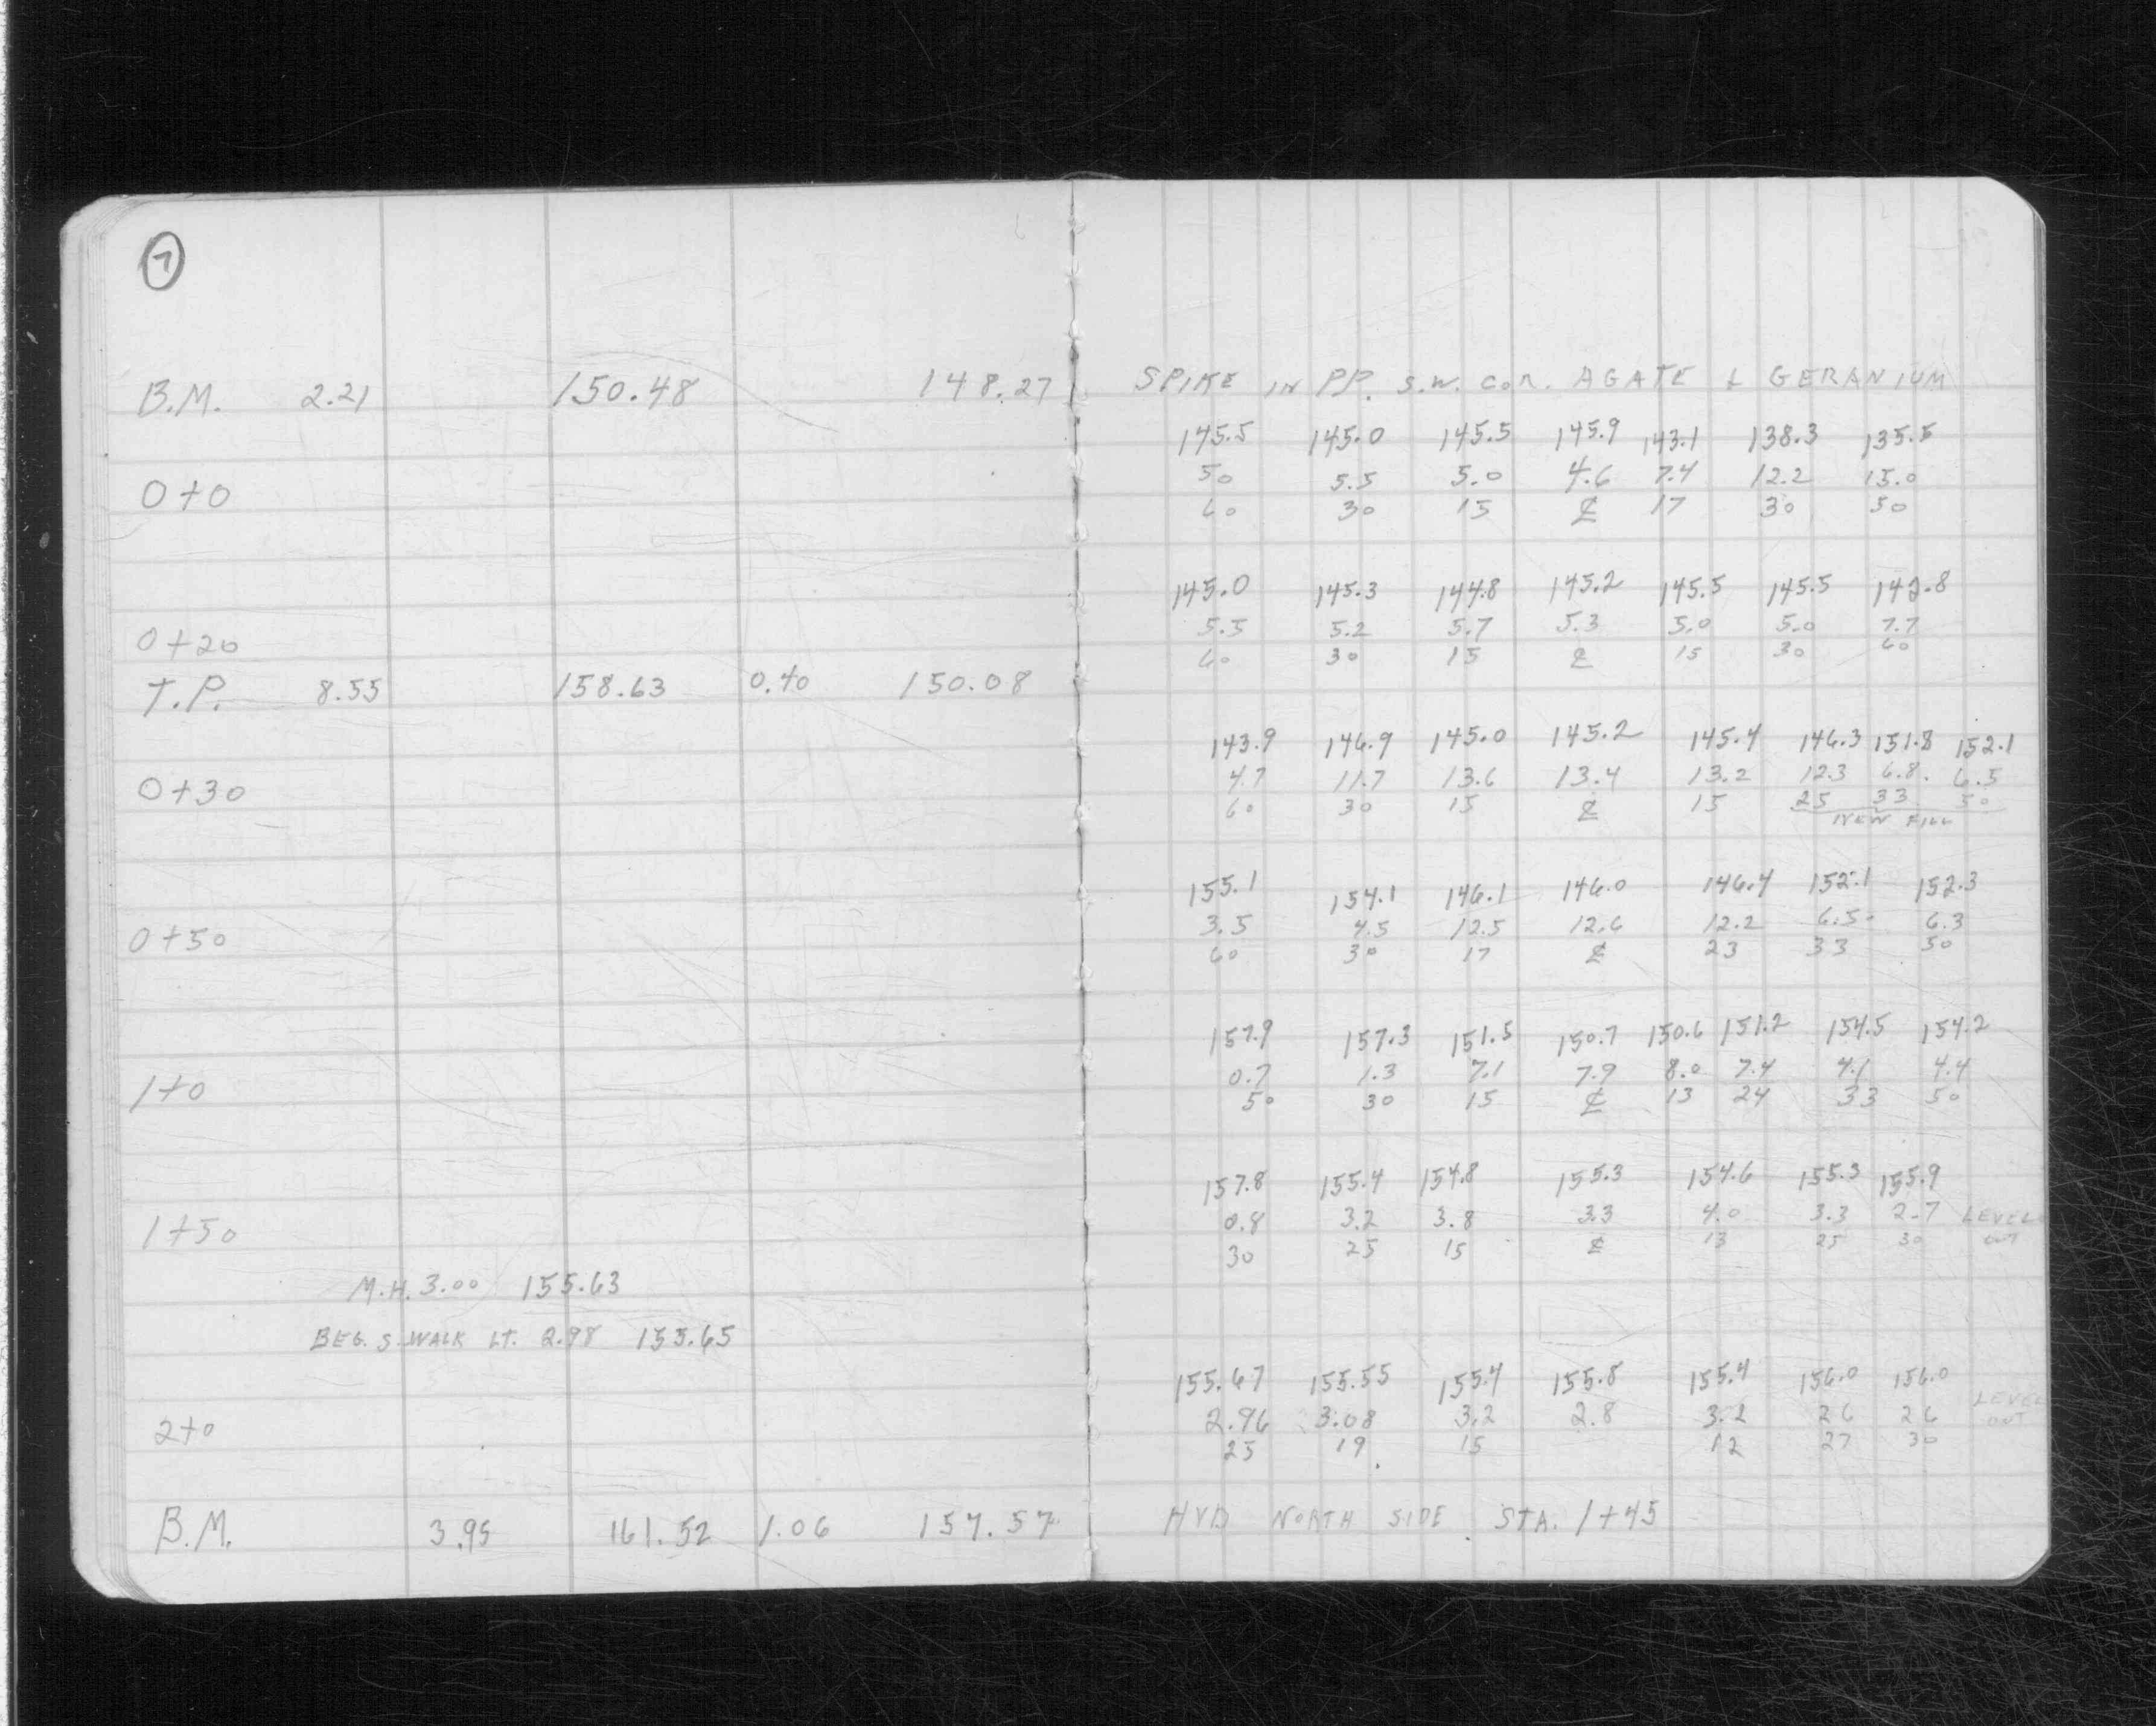 7
B.M. 2.21 150.48 148.27 SPIKE IN PP. S.W. COR. AGATE & GERANIUM
145.5 145.0 145.5 145.9 143.1 138.3 135.5
0+0 50 5.5 5.0 4.6 7.4 12.2 15.0
60 30 15 ℄ 17 30 50
145.0 145.3 144.8 145.2 145.5 145.5 142.8
0+20 5.5 5.2 5.7 5.3 5.0 5.0 7.7
60 30 15 ℄ 15 30 60
T.P. 8.55 158.63 0.40 150.08
143.9 146.9 145.0 145.2 145.4 146.3 151.8 152.1
0+30 4.7 11.7 13.6 13.4 13.2 12.3 6.8 6.5
60 30 15 ℄ 15 25 33 50
NEW FILL
155.1 154.1 146.1 146.0 146.4 152.1 152.3
0+50 3.5 4.5 12.5 12.6 12.2 6.5 6.3
60 30 17 ℄ 23 33 50
157.9 157.3 151.5 150.7 150.6 151.2 154.5 154.2
1+0 0.7 1.3 7.1 7.9 8.0 7.4 4.1 4.4
50 30 15 ℄ 13 24 33 50
157.8 155.4 154.8 155.3 154.6 155.3 155.9
1+50 0.8 3.2 3.8 3.3 4.0 3.3 2.7 LEVEL
30 25 15 ℄ 13 25 30 OUT
M.H. 3.00 155.63
BEG. S. WALK LT. 2.98 155.65
155.67 155.55 155.4 155.8 155.4 156.0 156.0 LEVEL
2+0 2.96 3.08 3.2 2.8 3.2 2.6 2.6 OUT
25 19 15 12 27 30
B.M. 3.95 161.52 1.06 157.57 HYD NORTH SIDE STA. 1+45